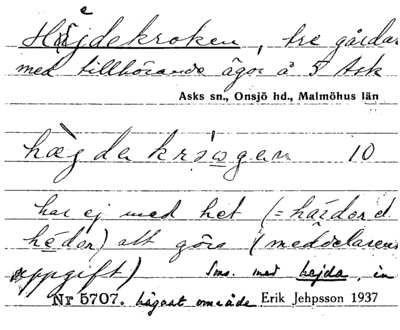 Höjdekroken, tre gårdar
med tillhörande ägor å 5 Ask
Asks sn., Onsjö hd., Malmöhus län
10
har ej med het (= hården d.
héden) att göra (meddelarens
uppgift) Sms. med hejda, in
Nr 5707. hägnat område Erik Jehpsson 1937